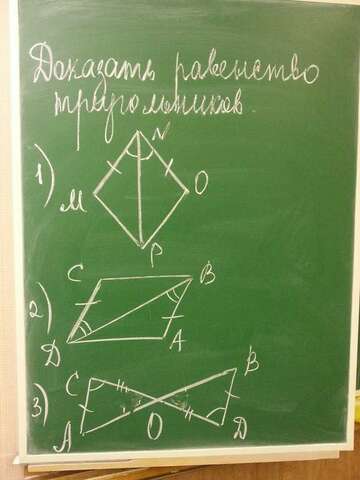 Доказать равенство
треугольников.
1)
N
M
O
P
2)
C
B
D
A
3)
C
B
A
O
D